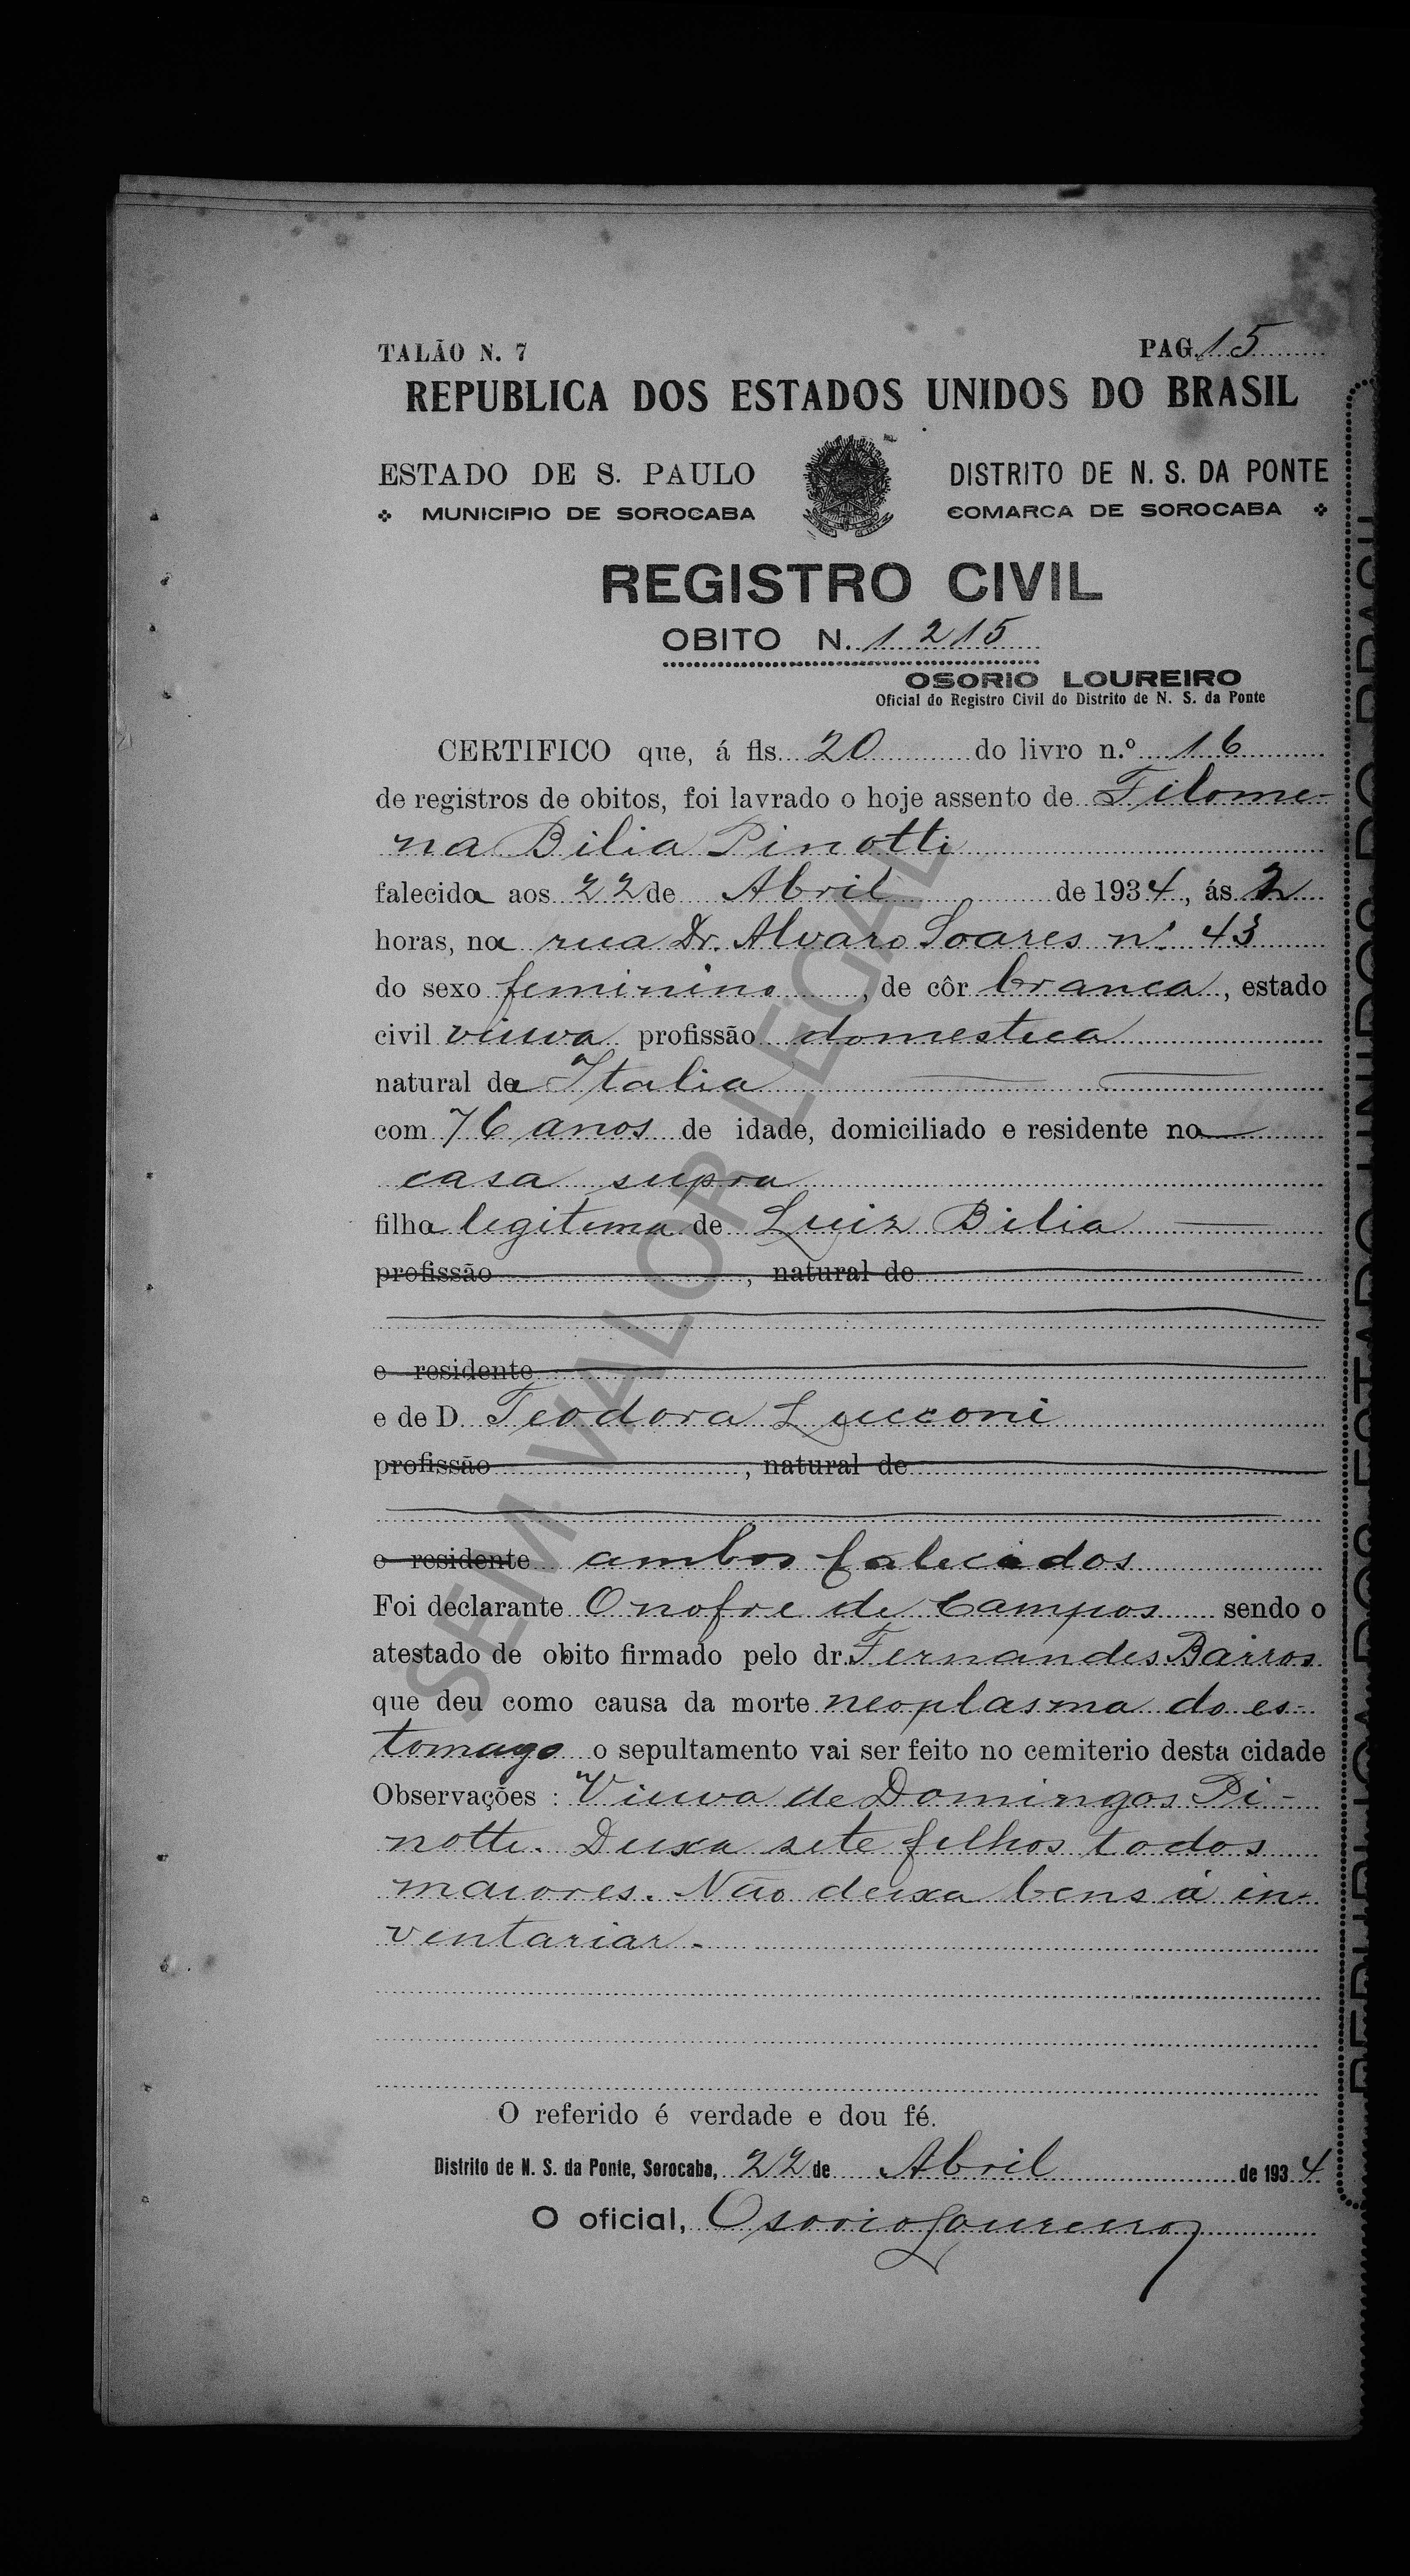 TALÃO N. 7 PAG. 15
REPUBLICA DOS ESTADOS UNIDOS DO BRASIL
ESTADO DE S. PAULO DISTRITO DE N. S. DA PONTE
MUNICIPIO DE SOROCABA COMARCA DE SOROCABA
REGISTRO CIVIL
OBITO N. 1215
OSORIO LOUREIRO
Oficial do Registro Civil do Distrito de N. S. da Ponte
CERTIFICO que, á fls. 20 do livro n.º 16
de registros de obitos, foi lavrado o hoje assento de Filome-
na Bilia Pinotti
falecida aos 22 de Abril de 1934, ás 2
horas, na rua Dr. Alvaro Soares nº 43
do sexo feminino, de côr branca, estado
civil viuva profissão domestica
natural da Italia
com 76 anos de idade, domiciliado e residente na
casa supra
filha legitima de Luiz Bilia
profissão , natural de
e residente
e de D. Teodora Lucconi
profissão , natural de
e residente ambos falecidos
Foi declarante Onofre de Campos sendo o
atestado de obito firmado pelo dr. Fernandes Bairros
que deu como causa da morte neoplasma do es-
tomago o sepultamento vai ser feito no cemiterio desta cidade
Observações : Viuva de Domingos Pi-
notti. Deixa sete filhos todos
maiores. Não deixa bens á in-
ventariar.
O referido é verdade e dou fé.
Distrito de N. S. da Ponte, Sorocaba, 22 de Abril de 1934
O oficial, Osorio Loureiro
SEM VALOR LEGAL